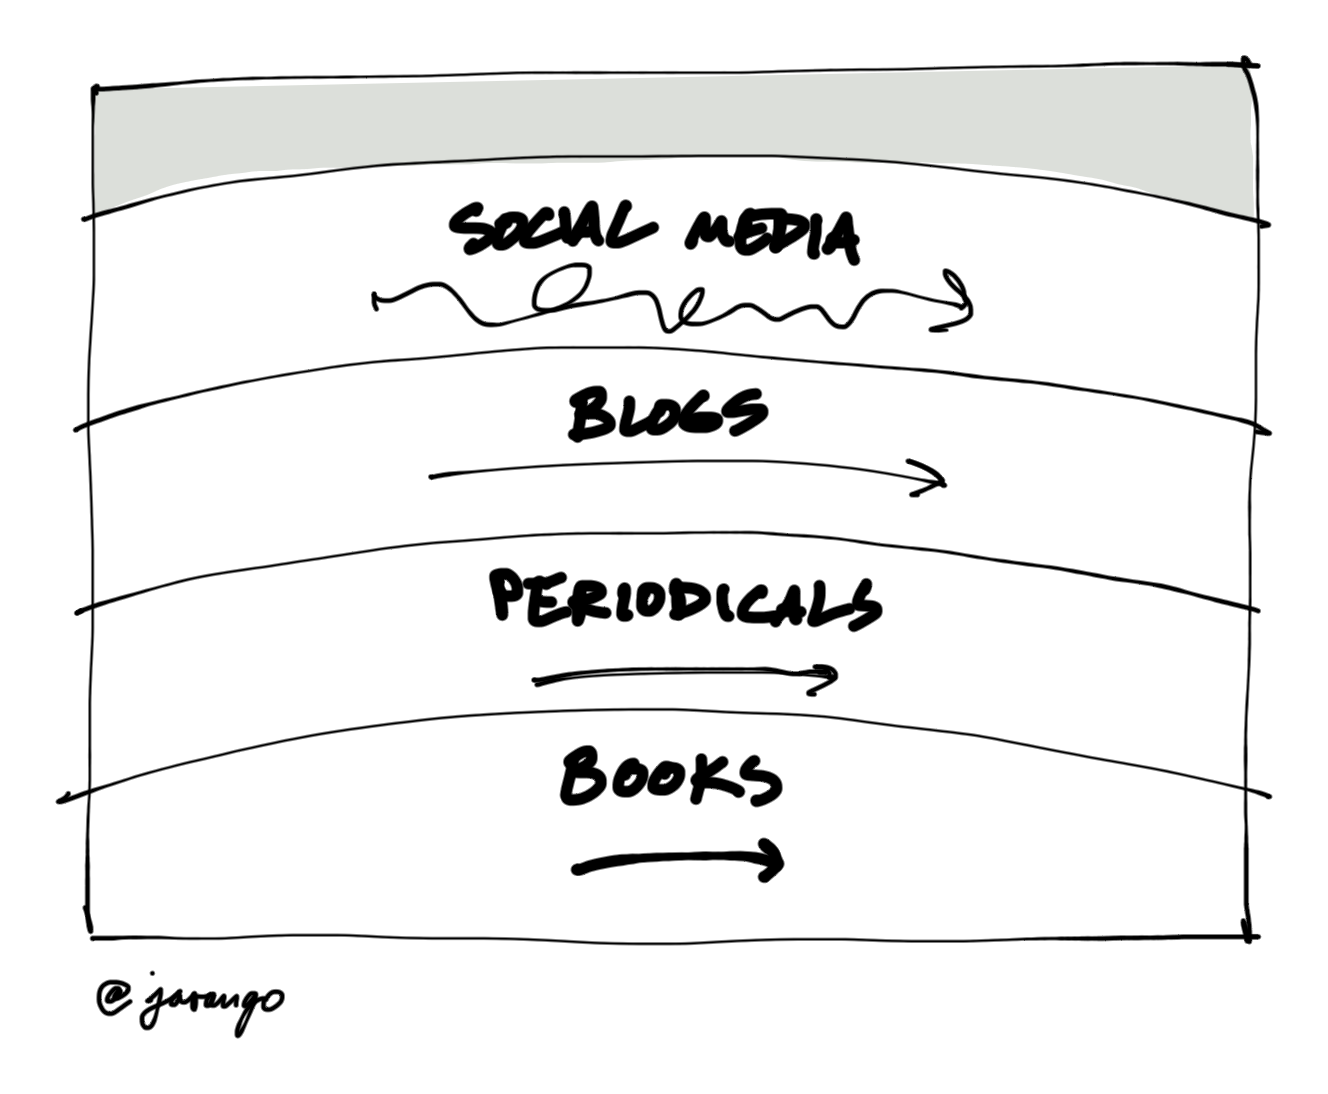 SOCIAL MEDIA
BLOGS
PERIODICALS
BOOKS
@jarango